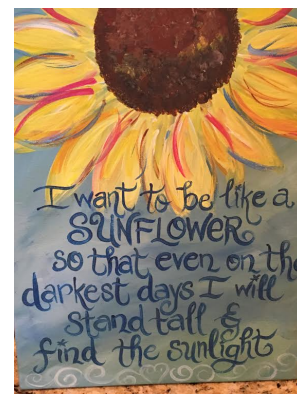 I want to be like a
SUNFLOWER
so that even on the
darkest days I will
stand tall &
find the sunlight